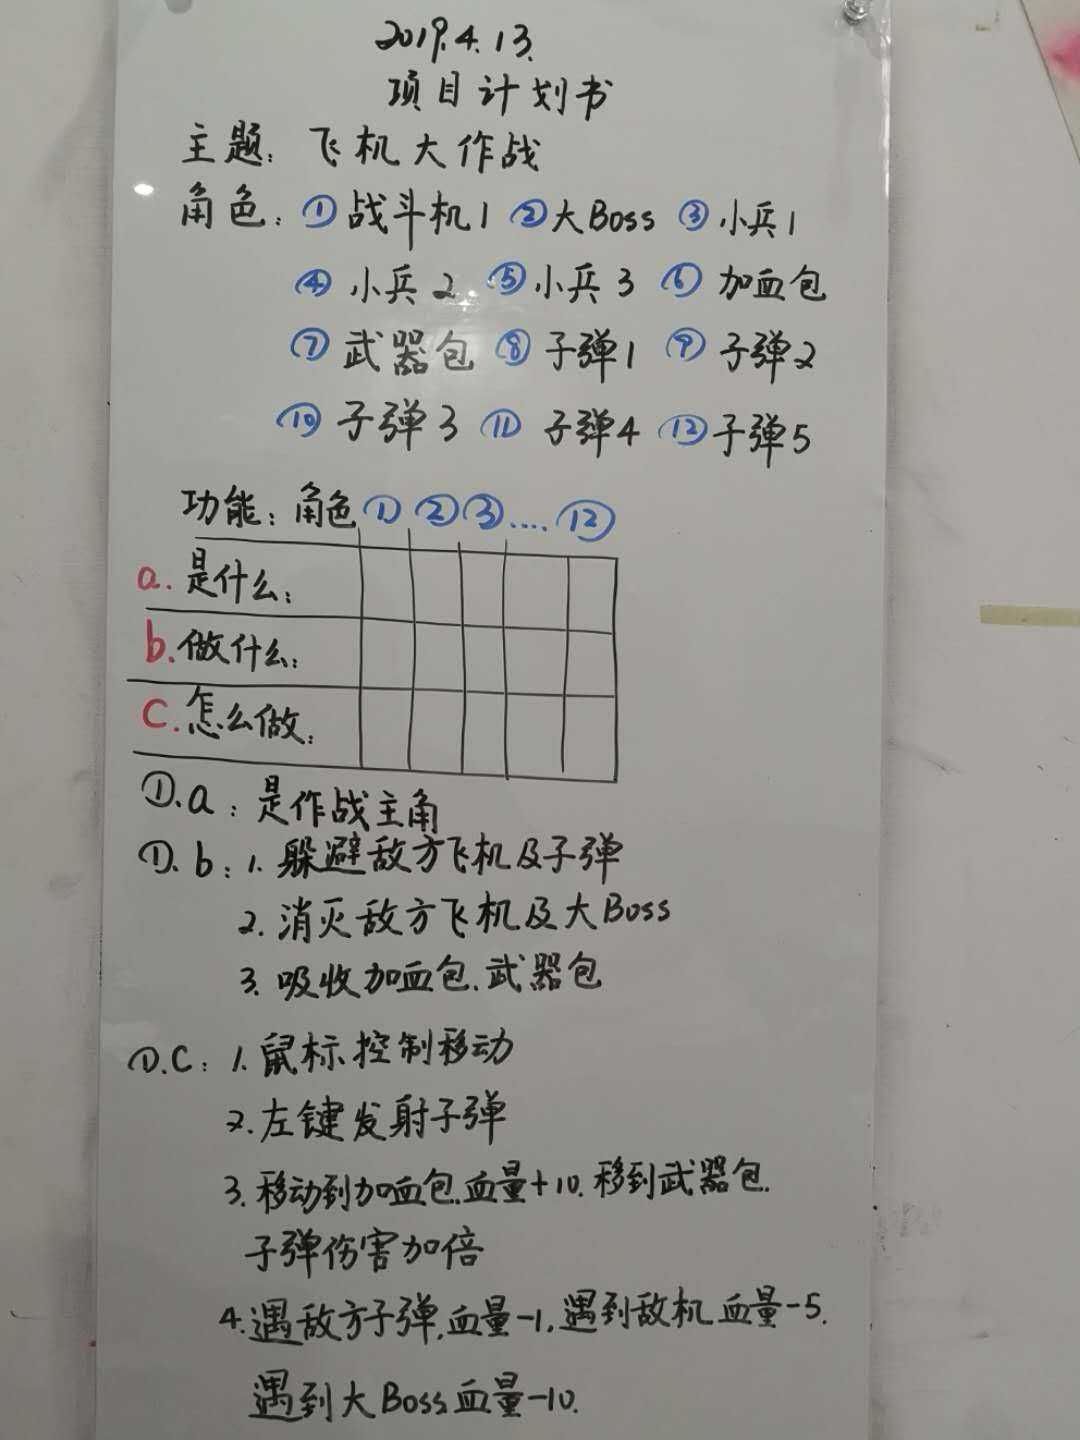 2019.4.13.
项目计划书
主题：飞机大作战
角色：①战斗机1 ②大Boss ③小兵1
④小兵2 ⑤小兵3 ⑥加血包
⑦武器包 ⑧子弹1 ⑨子弹2
⑩子弹3 ⑪子弹4 ⑫子弹5
功能：角色①②③....⑫
a.是什么：
b.做什么：
C.怎么做：
①.a：是作战主角
①.b：1.躲避敌方飞机及子弹
2.消灭敌方飞机及大Boss
3.吸收加血包.武器包
①.C：1.鼠标控制移动
2.左键发射子弹
3.移动到加血包.血量+10.移到武器包.
子弹伤害加倍
4.遇敌方子弹.血量-1,遇到敌机血量-5.
遇到大Boss血量-10.